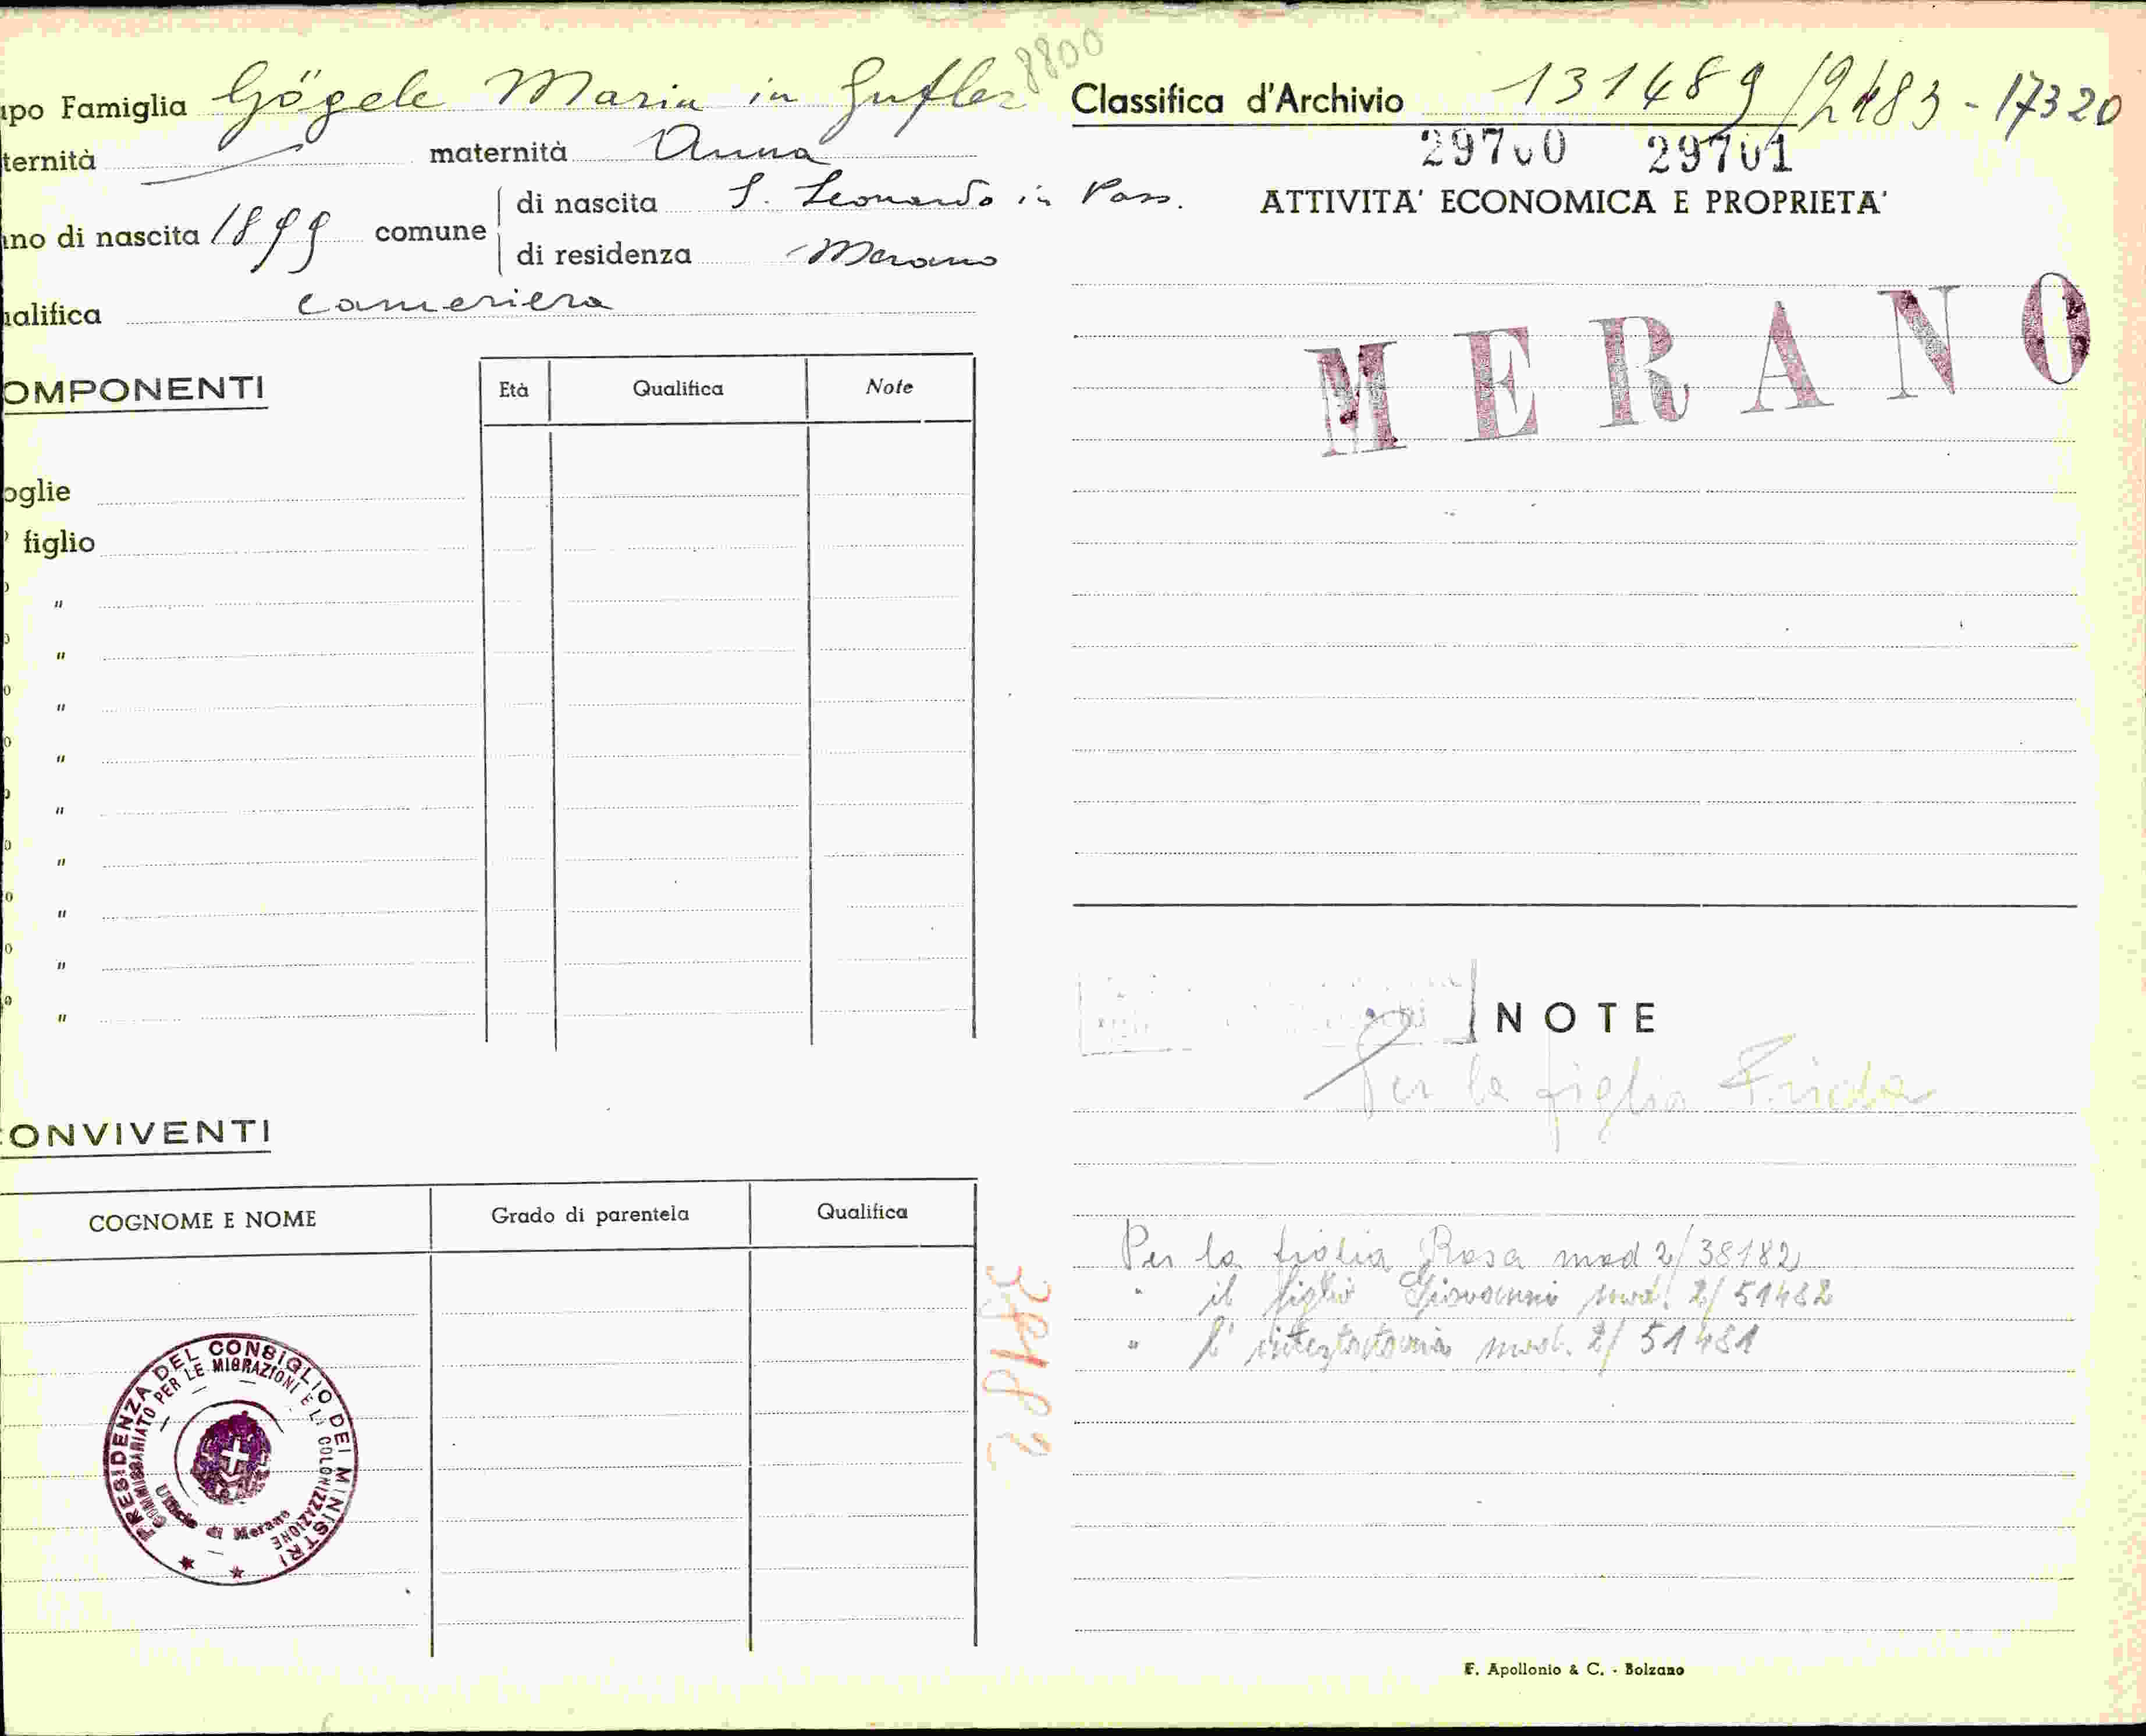 8800
ipo Famiglia Gögele Maria in Gufler
ternità — maternità Anna
ino di nascita 1899 comune di nascita S. Leonardo in Pass.
di residenza Merano
ialifica cameriera
OMPONENTI Età Qualifica Note
oglie
figlio
"
"
"
"
"
"
"
"
"
ONVIVENTI
COGNOME E NOME Grado di parentela Qualifica
PRESIDENZA DEL CONSIGLIO DEI MINISTRI
COMMISSARIATO PER LE MIGRAZIONI E LA COLONIZZAZIONE
Ufficio di Merano
Classifica d'Archivio 131489/2483-17320
29700 29701
ATTIVITA' ECONOMICA E PROPRIETA'
MERANO
NOTE
Per la figlia Frieda
Per la figlia Rosa mod 2/38182
" il figlio Giovanni mod. 2/51482
" l' intestataria mod. 2/51481
F. Apollonio & C. - Bolzano